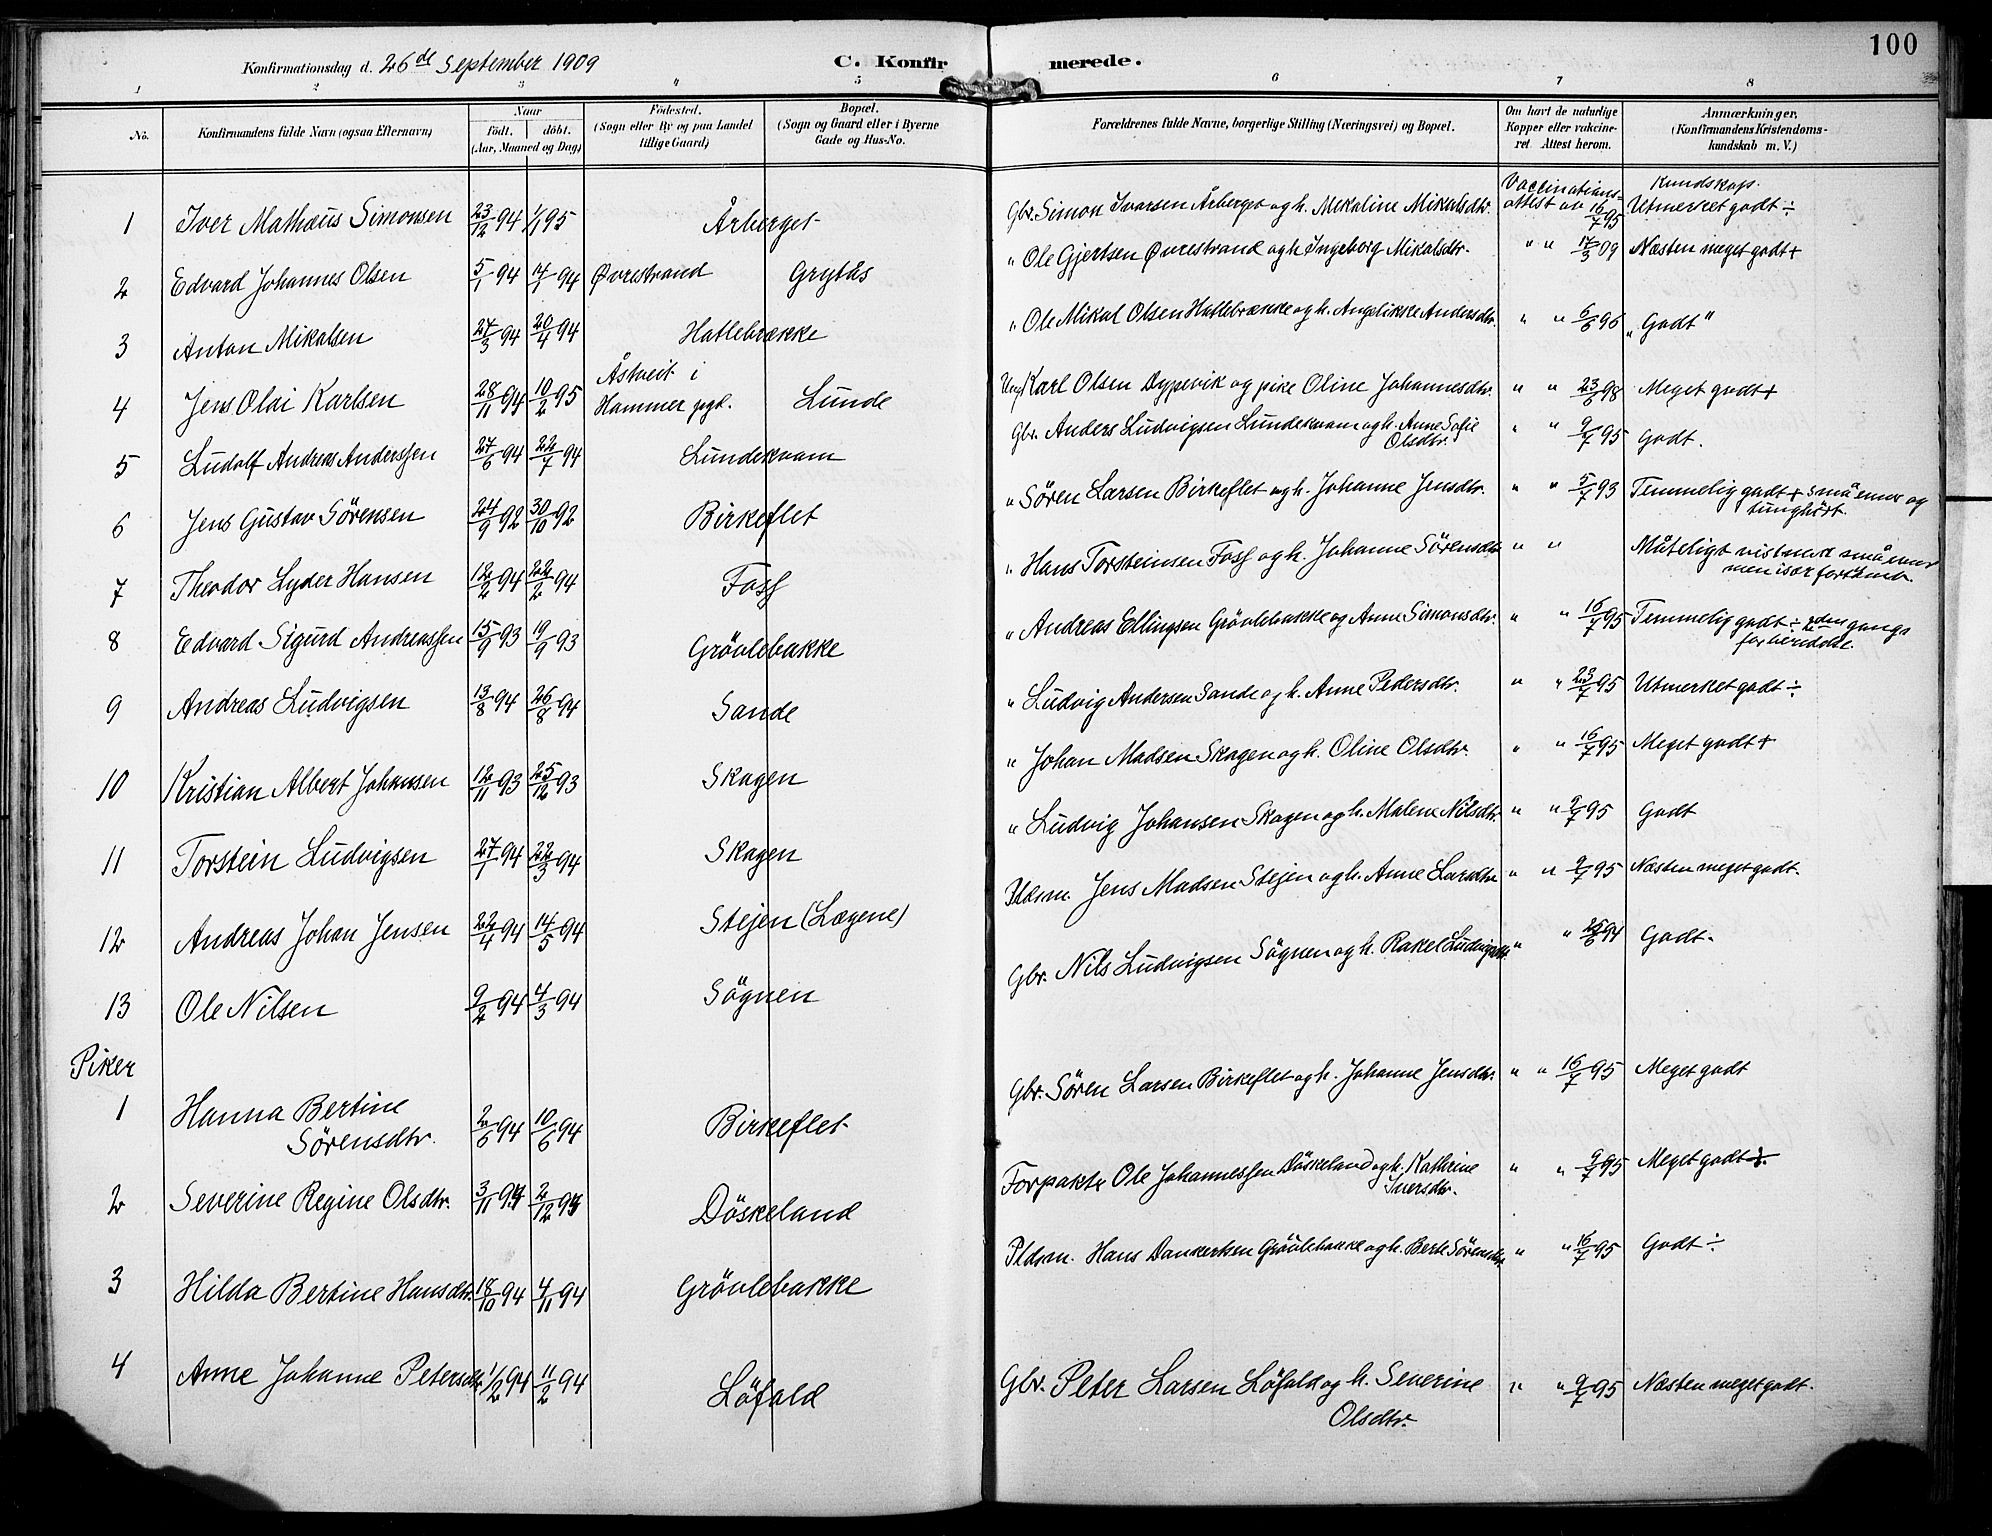 100
Konfirmationsdag d. 26de September 1909
C. Konfirmerede.
1 2 3 4 5 6 7 8
No. Konfirmandens fulde Navn (ogsaa Efternavn) Naar født. døbt. (Aar, Maaned og Dag) Fødested. (Sogn eller By og paa Landet tillige Gaard) Bopæl. (Sogn og Gaard eller i Byerne Gade og Hus-No. Forældrenes fulde Navne, borgerlige Stilling (Næringsvei) og Bopæl. Om havt de naturlige Kopper eller vakcineret Attest herom. Anmærkninger. (Konfirmandens Kristendomskundskab m. V.)
Kundskap.
1 Iver Mathæus Simonsen 23/12 94 1/1 95 Årberget Gbr. Simon Ivarsen Årberget og h. Mikaline Mikalsdtr. Vaccinationsattest av 16/7 95 Utmerket godt ÷
2 Edvard Johannes Olsen 5/1 94 14/1 94 Øvrestrand Grytås " Ole Gjertsen Øvrestrand og h. Ingeborg Mikalsdtr. " " 17/3 09 Næsten meget godt +
3 Anton Mikalsen 27/3 94 20/4 94 Hatlebrække " Ole Mikal Olsen Hatlebrække og h. Angelikke Andersdtr. " " 6/6 96 "Godt"
4 Jens Olai Karlsen 28/11 94 10/2 95 Åstveit i Hammer pgd. Lunde Ung Karl Olsen Dypevik og pike Oline Johannesdtr. " " 23/6 98 Meget godt +
5 Ludolf Andreas Anderssen 27/6 94 22/7 94 Lundekvam Gbr. Anders Ludvigsen Lundekvam og h. Anne Sofie Olsdtr. " " 9/7 95 Godt.
6 Jens Gustav Sörensen 24/9 92 30/10 92 Birkeflet " Sören Larsen Birkeflet og h. Johanne Jensdtr. " " 5/7 93 Temmelig godt + små evner og tunghört.
7 Theodor Lyder Hansen 12/2 94 22/2 94 Foss " Hans Torsteinsen Foss og h. Johanne Sörensdtr " " Måteligt vistnok små evner men især forsömt.
8 Edvard Sigurd Andreassen 15/9 93 19/9 93 Grövlebakke " Andreas Ellingsen Grövlebakke og Anne Simonsdtr. " " 16/7 95 Temmelig godt ÷ 2den gangs forberedelse.
9 Andreas Ludvigsen 13/8 94 26/8 94 Sande " Ludvig Andersen Sande og h. Anne Pedersdtr. " " 23/7 95 Utmerket godt ÷
10 Kristian Albert Johansen 12/11 93 25/12 93 Skagen " Johan Madsen Skagen og h. Oline Olsdtr. " " 16/7 95 Meget godt +
11 Torstein Ludvigsen 27/1 94 22/3 94 Skagen " Ludvig Johansen Skagen og h. Malene Nilsdtr. " " 9/7 95 Godt
12 Andreas Johan Jensen 22/4 94 14/5 94 Steien (Lægene) Pldsm. Jens Madsen Steien og h. Anne Larsdtr " " 9/7 95 Næsten meget godt.
13 Ole Nilsen 9/2 94 4/3 94 Sögnen Gbr. Nils Ludvigsen Sögnen og h. Rakel Ludvigsdtr. " " 94 Godt.
Piker
1 Hanna Bertine Sörensdtr. 2/6 94 10/6 94 Birkeflet Gbr. Sören Larsen Birkeflet og h. Johanne Jensdtr. " " 16/7 95 Meget godt
2 Severine Regine Olsdtr. 3/11 94 2/12 94 Döskeland Forpakter Ole Johannessen Döskeland og h. Kathrine Iversdtr. " " 9/7 95 Meget godt ÷.
3 Hilda Bertine Hansdtr. 18/10 94 4/11 94 Grövlebakke Pldsm. Hans Dankertsen Grövlebakke og h. Berte Sörensdtr " " 16/7 95 Godt ÷
4 Anne Johanne Petersdtr. 1/2 94 11/2 94 Löfald Gbr. Peter Larsen Löfald og h. Severine Olsdtr. " " 9/7 95 Næsten meget godt.